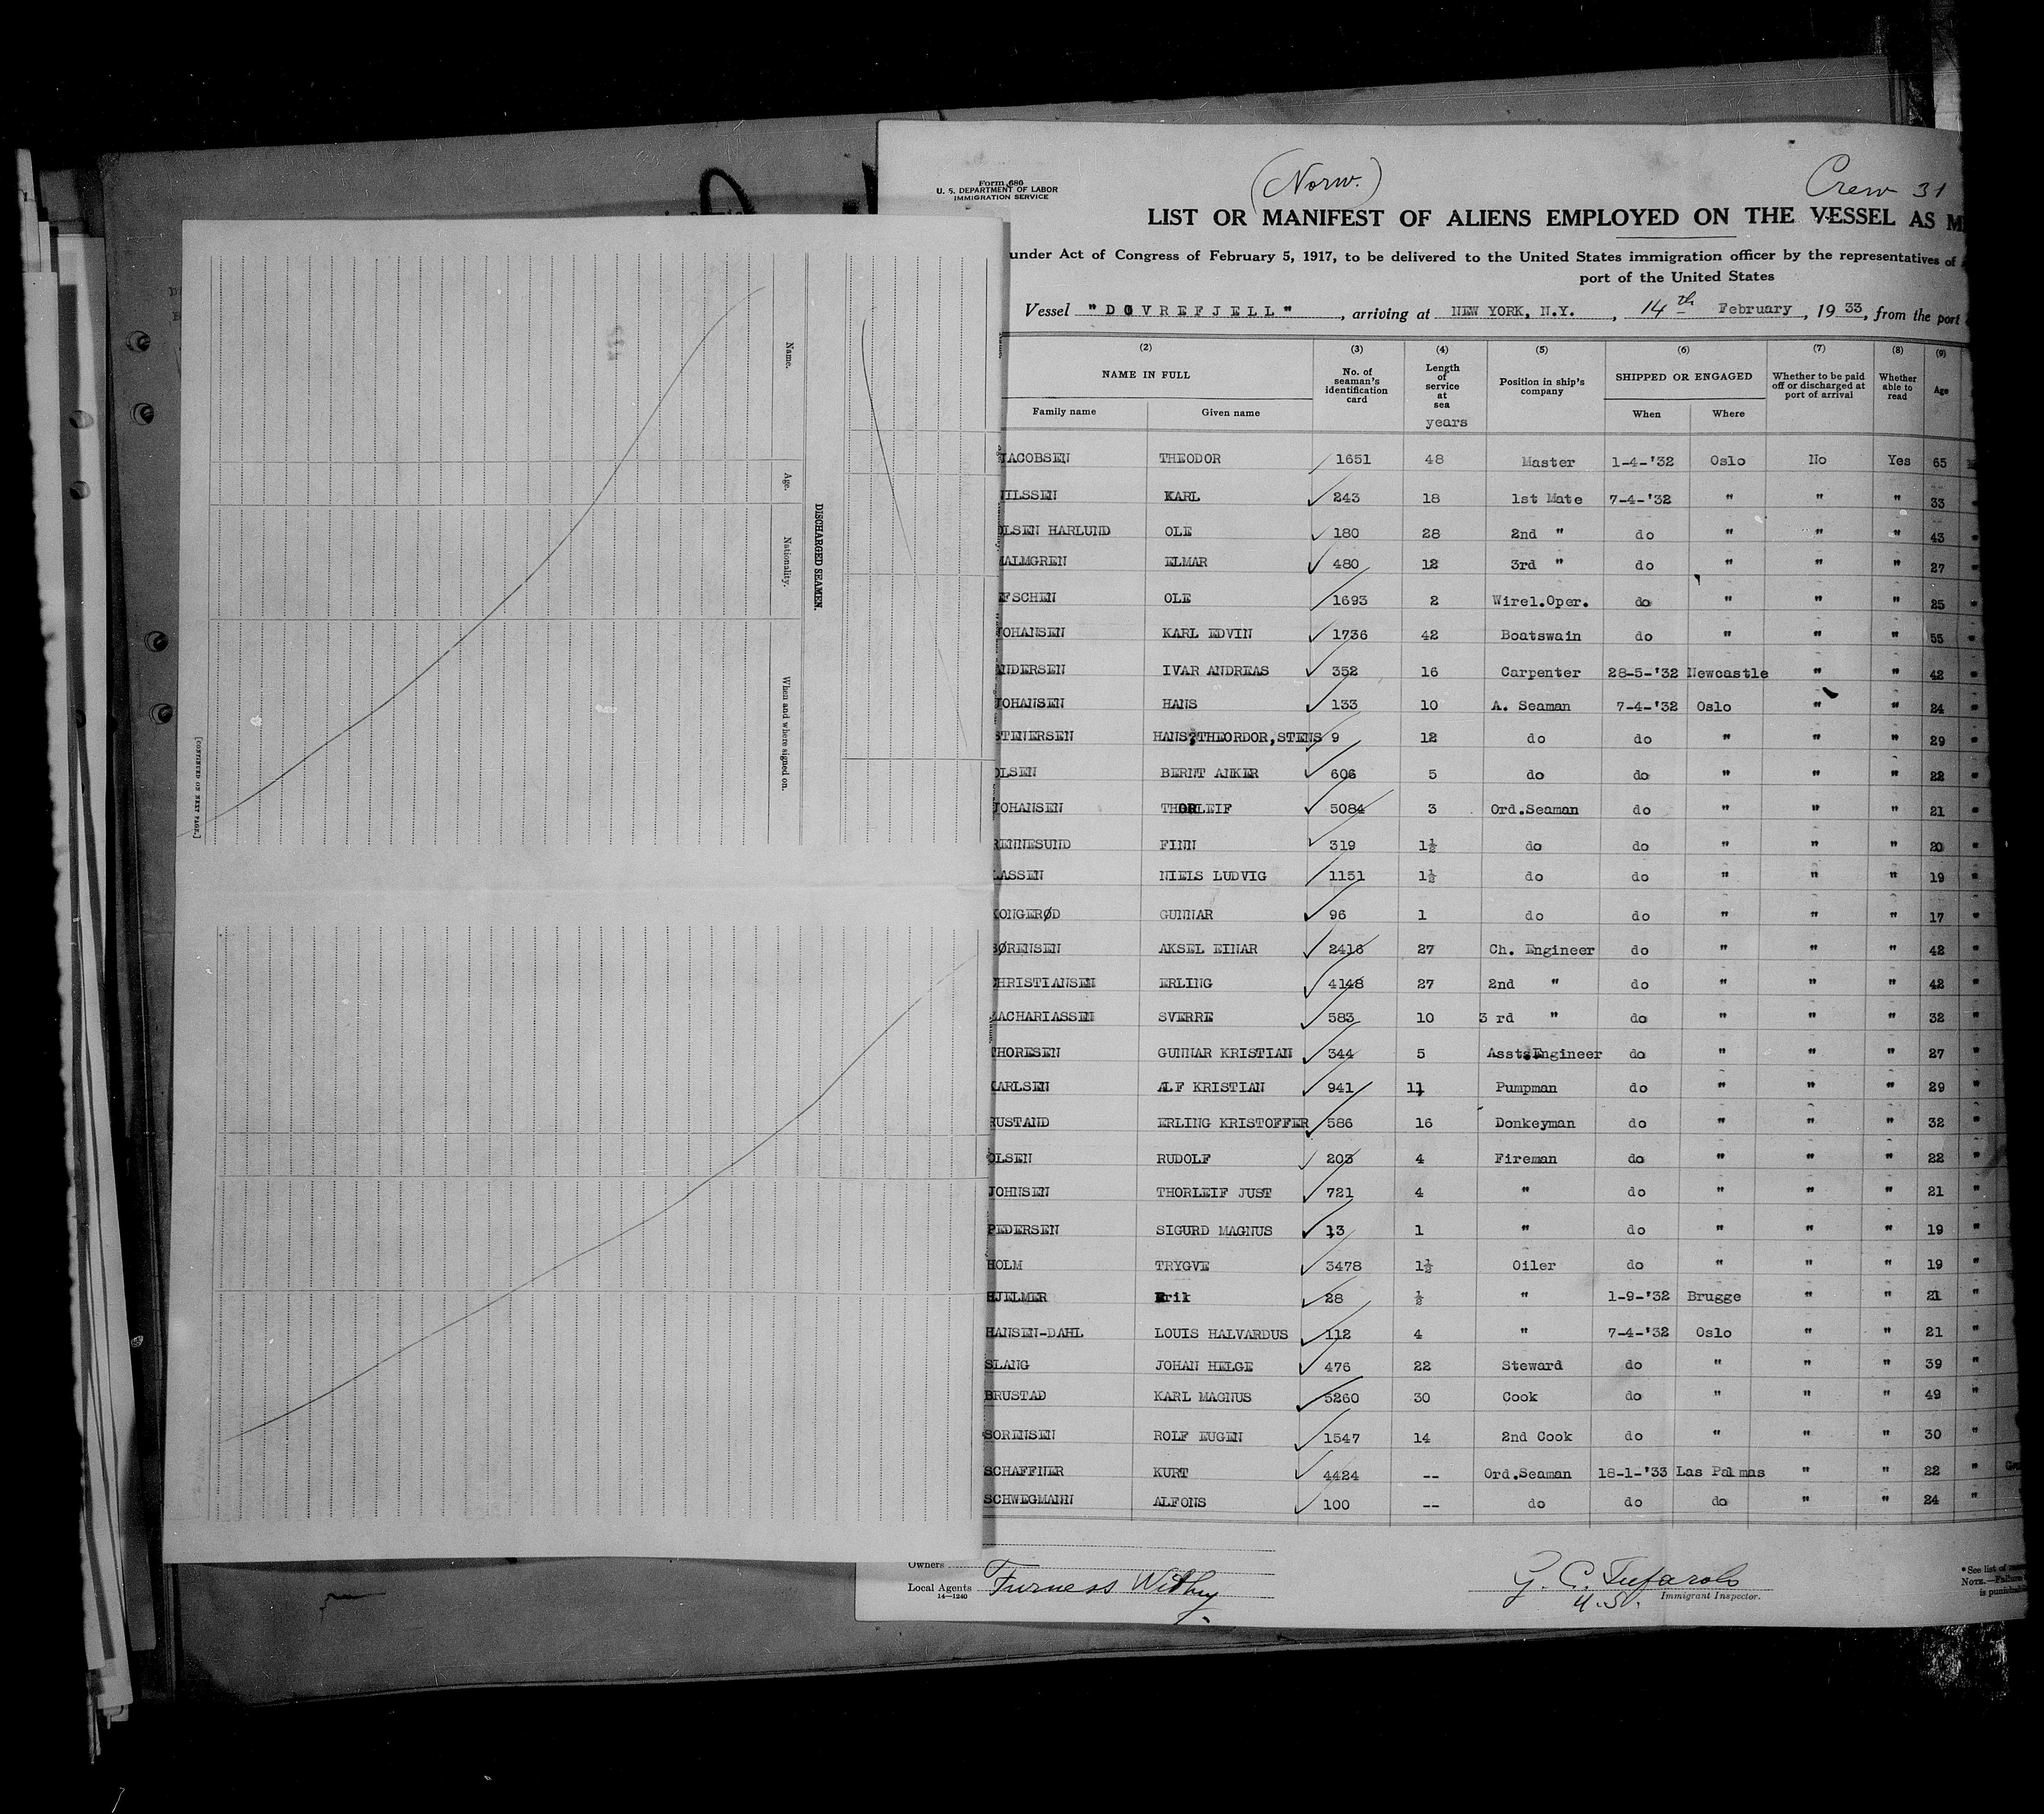 Form 686
U. S. DEPARTMENT OF LABOR
IMMIGRATION SERVICE
(Norw.)
Crew 31
LIST OR MANIFEST OF ALIENS EMPLOYED ON THE VESSEL AS M
under Act of Congress of February 5, 1917, to be delivered to the United States immigration officer by the representatives of
port of the United States
Vessel "DOVREFJELL", arriving at NEW YORK, N.Y., 14th February, 1933, from the port
(2) (3) (4) (5) (6) (7) (8) (9)
NAME IN FULL No. of seaman's identification card Length of service at sea Position in ship's company SHIPPED OR ENGAGED Whether to be paid off or discharged at port of arrival Whether able to read Age
Family name Given name years When Where
JACOBSEN THEODOR 1651 48 Master 1-4-'32 Oslo No Yes 65
NILSSEN KARL 243 18 1st Mate 7-4-'32 " " " 33 "
OLSEN HARLUND OLE 180 28 2nd " do " " " 43 "
MALMGREN ELMAR 480 12 3rd " do " " " 27 "
FSCHEN OLE 1693 2 Wirel.Oper. do " " " 25 "
JOHANSEN KARL EDVIN 1736 42 Boatswain do " " " 55 "
ANDERSEN IVAR ANDREAS 352 16 Carpenter 28-5-'32 Newcastle " " 42 "
JOHANSEN HANS 133 10 A. Seaman 7-4-'32 Oslo " " 24 "
STENERSEN HANS,THEORDOR,STENS 9 12 do do " " " 29 "
OLSEN BERNT ANKER 606 5 do do " " " 22 "
JOHANSEN THORLEIF 5084 3 Ord.Seaman do " " " 21 "
RENNESUND FINN 319 1½ do do " " " 20 "
LASSEN NIELS LUDVIG 1151 1½ do do " " " 19 "
KONGERØD GUNNAR 96 1 do do " " " 17 "
SØRENSEN AKSEL EINAR 2416 27 Ch. Engineer do " " " 42 "
CHRISTIANSEN ERLING 4148 27 2nd " do " " " 42 "
ZACHARIASSEN SVERRE 583 10 3 rd " do " " " 32 "
THORESEN GUNNAR KRISTIAN 344 5 Assts.Engineer do " " " 27 "
KARLSEN ALF KRISTIAN 941 11 Pumpman do " " " 29 "
RUSTAND ERLING KRISTOFFER 586 16 Donkeyman do " " " 32 "
OLSEN RUDOLF 203 4 Fireman do " " " 22 "
JOHNSEN THORLEIF JUST 721 4 " do " " " 21 "
PEDERSEN SIGURD MAGNUS 13 1 " do " " " 19 "
HOLM TRYGVE 3478 1½ Oiler do " " " 19 "
HJELMER Erik 28 ½ " 1-9-'32 Brugge " " 21 "
HANSEN-DAHL LOUIS HALVARDUS 112 4 " 7-4-'32 Oslo " " 21 "
SLANG JOHAN HELGE 476 22 Steward do " " " 39 "
BRUSTAD KARL MAGNUS 5260 30 Cook do " " " 49 "
SORENSEN ROLF EUGEN 1547 14 2nd Cook do " " " 30 "
SCHAFFNER KURT 4424 -- Ord.Seaman 18-1-'33 Las Palmas " " 22 "
SCHWEGMANN ALFONS 100 -- do do do " " 24 "
Owners
Local Agents Furness Withy
14—1240
G. C. Tufarolo
U.S. Immigrant Inspector.
*See list of
NOTE.—Failure
is punishable
Name.
Age.
Nationality.
When and where signed on.
DISCHARGED SEAMEN.
[CONTINUED ON NEXT PAGE.]